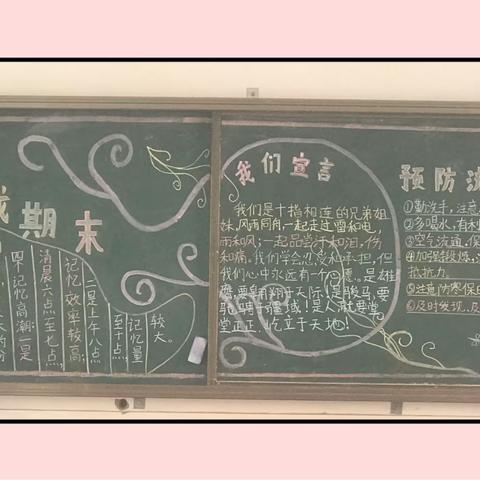 期末
四个记忆高潮:一是
清晨六点至七点,
记忆效率较高;
二是上午八点
至十点,
记忆量
较大。
我们宣言
我们是十指和连的兄弟姐
妹,风雨同舟,一起走过雷和电,
雨和风;一起品尝汗和泪,伤
和痛。我们学会忍受和承担,但
我们心中永远有个愿。是雄
鹰,要翱翔于天际!是骏马,要
驰骋于疆域!是人就要堂
堂正正,屹立于天地!
预防流
①勤洗手,注意
②多喝水,有利
③空气流通,保
④加强锻炼,
抵抗力。
⑤注意防寒保
⑥及时发现,及